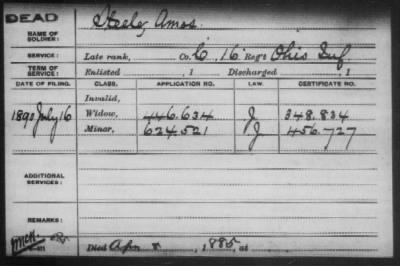 DEAD
NAME OF SOLDIER: Steele, Amos.
SERVICE: Late rank, Co. C, 16 Reg't Ohio Inf
TERM OF SERVICE: Enlisted , 1 Discharged , 1
DATE OF FILING. CLASS. APPLICATION NO. LAW. CERTIFICATE NO.
Invalid,
1890 July 16 Widow, 446.634 J 348.834
Minor, 624.521 J 456.727
ADDITIONAL SERVICES:
REMARKS:
Died Apr 8, 1885, at